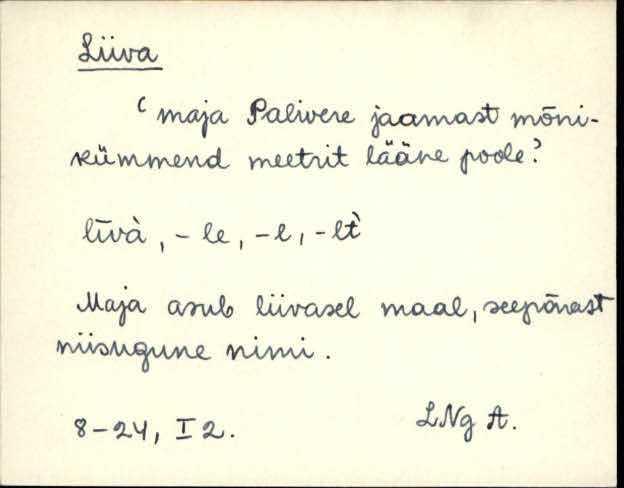 Liiva
‘maja Palivere jaamast mõni-
kümmend meetrit lääne poole’
līvà, -le, -l, -lt̀
Maja asub liivasel maal, seepärast
niisugune nimi.
8-24, I 2.
LNg A.